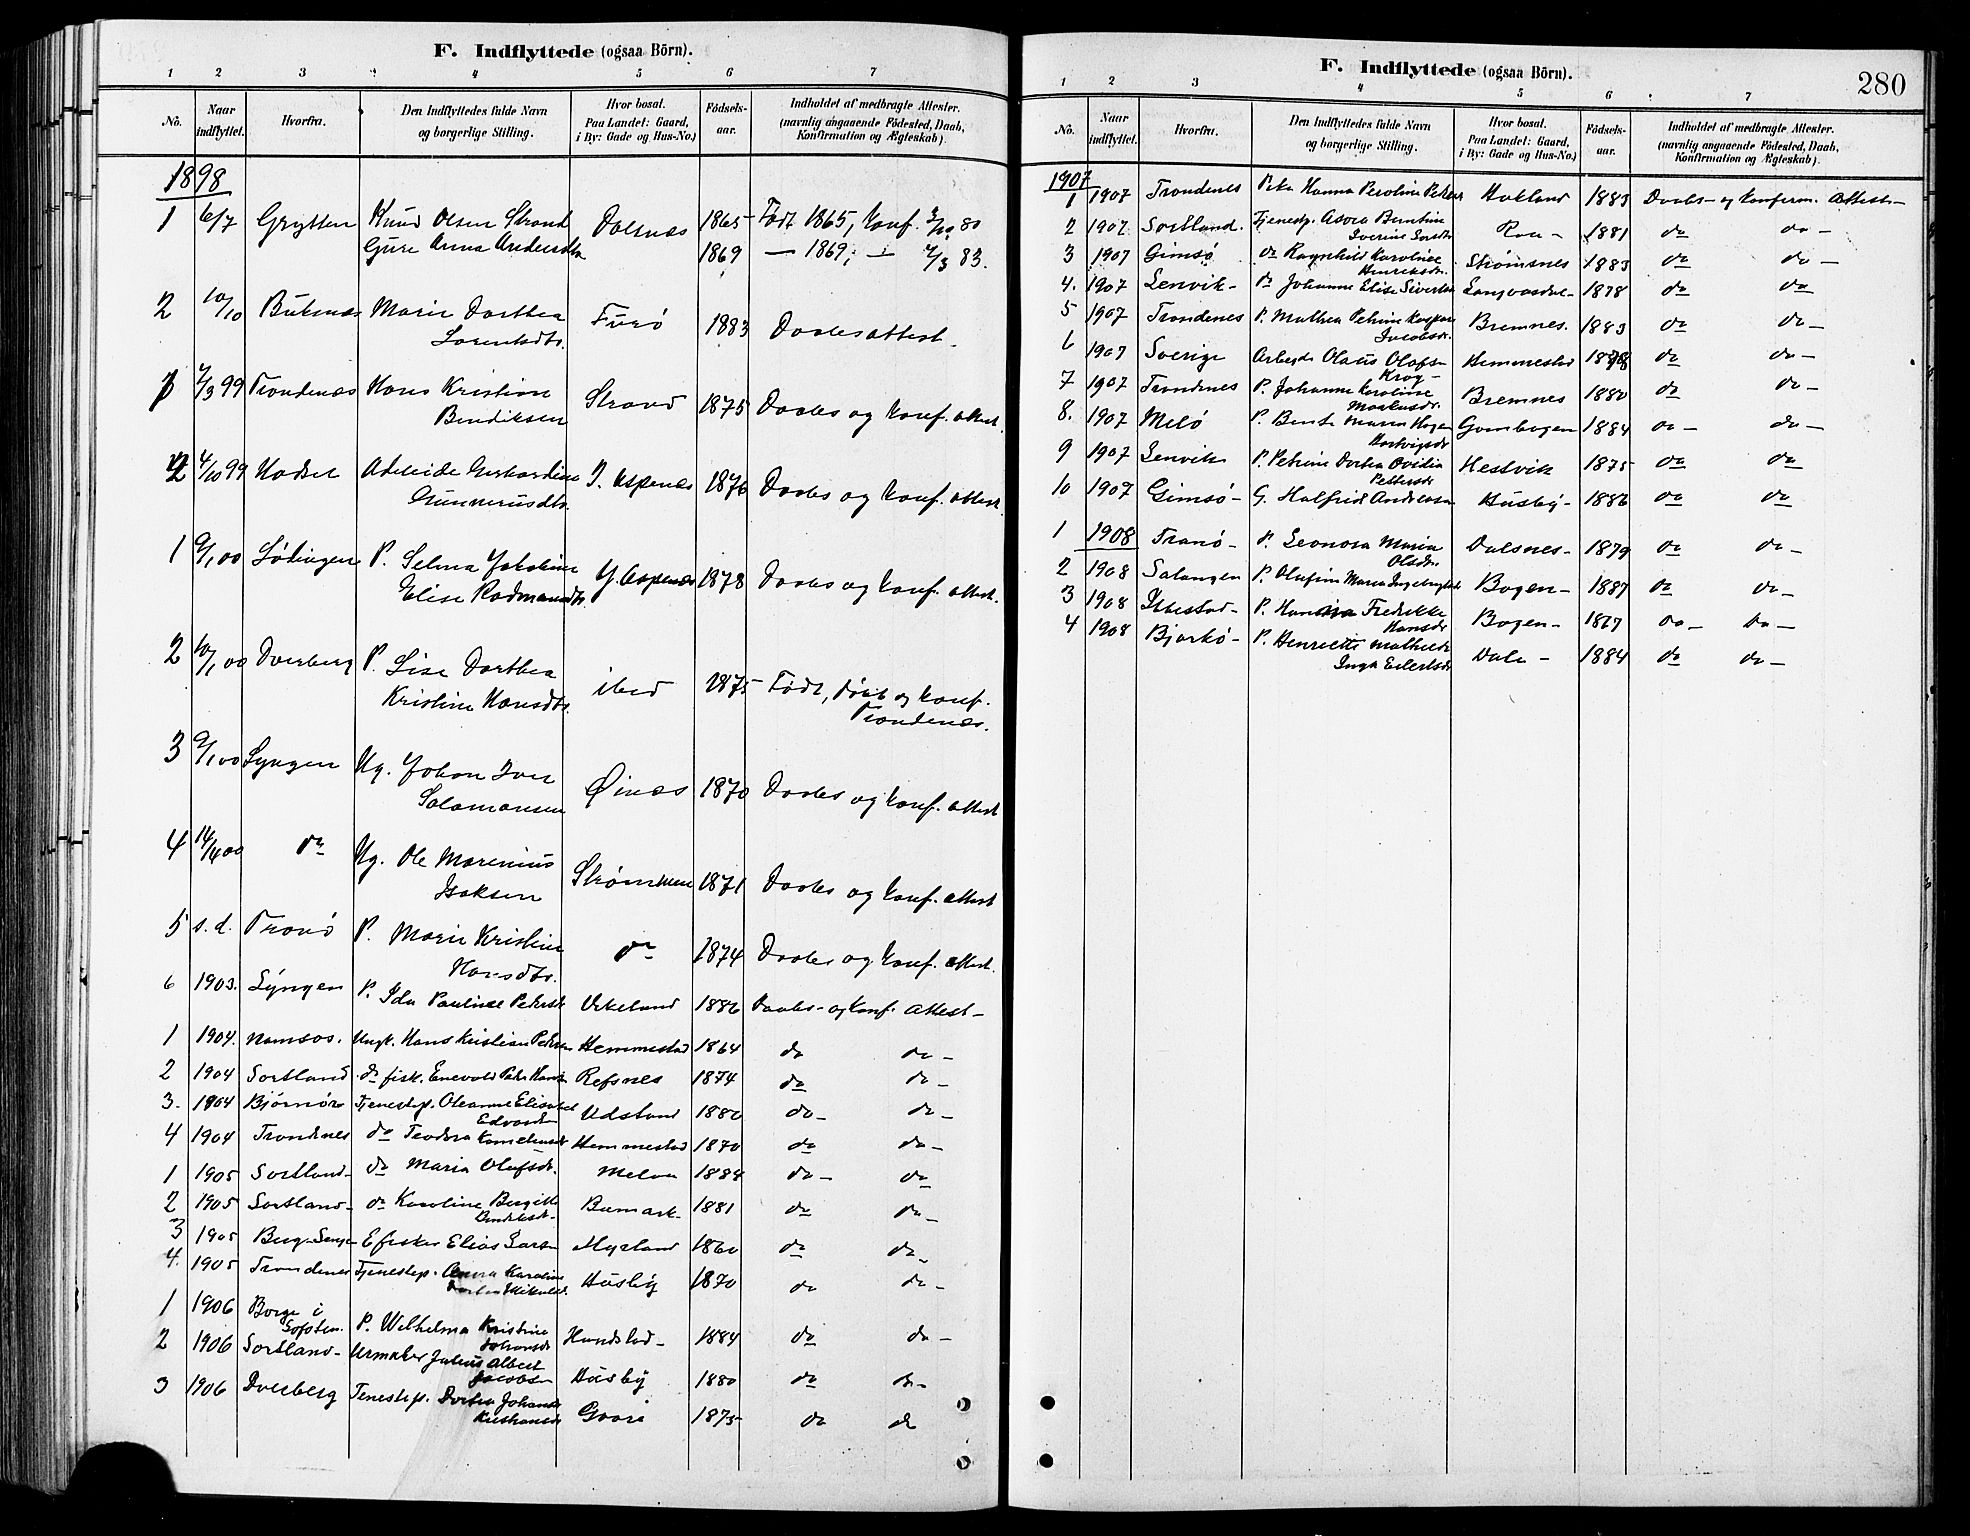 F. Indflyttede (ogsaa Börn).
1 2 3 4 5 6 7
No. Naar indflyttet. Hvorfra. Den Indflyttedes fulde Navn og borgerlige Stilling. Hvor bosat. Paa Landet: Gaard, i By: Gade og Hus-No.) Födsels-aar. Indholdet af medbragte Attester. (navnlig angaaende Födested, Daab, Konfirmation og Ægteskab).
1898
1 6/7 Grytten Knud Olsen Strand Dalsnæs 1865 Født 1865, konf. 80
Gure Anna Andersdtr. 1869 — 1869, — 83.
2 10/10 Buksnæs Marie Dorthea Furö 1883 Daabsattest.
Lorentsdtr.
1 99 Trondenæs Hans Kristian Strand 1875 Daabs og konf. attest.
Bendiksen
2 4/10 99 Hadsel Adelaide Gerhardine Y. Aspenæs 1876 Daabs og konf. attest.
Gunnerusdtr.
1 9/1 00 Lødingen P. Selma Jakobine Y. Aspenæs 1878 Daabs og konf. attest.
Elise Rodmandtr.
2 10/1 00 Dverberg P. Lise Dorthea ibid 1875 Født, døbt og konf.
Kristine Hansdtr. Trondenæs.
3 9/1 00 Lyngen Ug. Johan Iver Øinæs 1870 Daabs og konf. attest
Salamonsen
4 14/4 00 do Ug. Ole Marenius Strømmen 1871 Daabs og konf. attest
Isaksen
5 s.d. Tranö P. Marie Kristine do 1874 Daabs og konf. attest.
Hansdtr.
6 1903. Lyngen P. Ida Pauline Peters Virkeland 1886 Daabs- og konf. attest-
1 1904. Namsos. Ungk. Hans Kristian Petersen Hemmestad 1864 do do-
2 1904 Sortland do fisk. Enevold Peder Hans Refsnes 1874 do do-
3. 1904 Bjørnør Tjenestep. Oleanne Elisabet Udstand 1880 do- do-
4 1904 Trondenes do Teodora Korneliusdtr Hemmestad 1870 do do-
1 1905 Sortland- do Maria Olufsdr. Melaa 1884 do- do
2 1905 Sortland- do Karoline Bergitte Bumark- 1881 do do-
3 1905 Berg Senjen Efisker Elias Larsen Myrland 1860 do do-
4. 1905 Trondenes Tjenestep. Anna Karoline Husby 1870 do do-
1 1906 Borge i P. Wilhelma Kristine Hundstad- 1884 do do-
Lofoten. Johansdr
2 1906 Sortland- Urmaker Julius Albert Husby 1880 do do-
Jacobsen
3 1906 Dverberg Tenestep. Dortea Johanna 1875- do do
Kristiansdr
F. Indflyttede (ogsaa Börn). 280
1 2 3 4 5 6 7
No. Naar indflyttet. Hvorfra. Den Indflyttedes fulde Navn og borgerlige Stilling. Hvor bosat. Paa Landet: Gaard, i By: Gade og Hus-No.) Födsels-aar. Indholdet af medbragte Attester. (navnlig angaaende Födested, Daab, Konfirmation og Ægteskab).
1907
1 1907 Trondenes Pike Hanna Peroline Peters Hokland 1883 Daabs- og konferm. Attest-
2 1907. Sortland. Tjenestp. Asora Berntine Roa- 1881 do do-
3 1907 Gimsø do Ragnhild Karoline Strømsnes 1883 do do-
Henriksdr.
4. 1907 Lenvik- do Johanne Elise Sivertsen Langvasdal- 1878 do do
5 1907 Trondenes P. Mathea Petrine Kaspara Bremnes. 1883 do do-
Jacobsdr.
6 1907 Sverige Arbeyde Olaus Olofsn Hemmestad do do-
Krog-
7 1907 Trondenes P. Johanne Karoline Bremnes 1880 do do-
Markusdr.
8. 1907 Melø P. Hagen Gombogen 1884 do- do-
Hartvigsdr
9 1907 Lenvik P. Petrine Dortea Ovidia Hestvik 1875 do do
Pettersdr
10 1907 Gimsø- G. Halfrid Andreasen Husby- 1886 do do
1 1908 Tranö- P. Leonora Maria Dalsnes- 1879 do do-
Olsdr.
2 1908 Salangen P. Olufine Maria Ingebrigtsdr Bogen- 1887 do do-
3 1908 Ibbestad- P. Hansina Fredrikke Bogen- 1867 do- do-
Hansdr
4 1908 Bjarkö- P. Henriette Mathilde Dale- 1884 do do-
Inga Eilertsdr